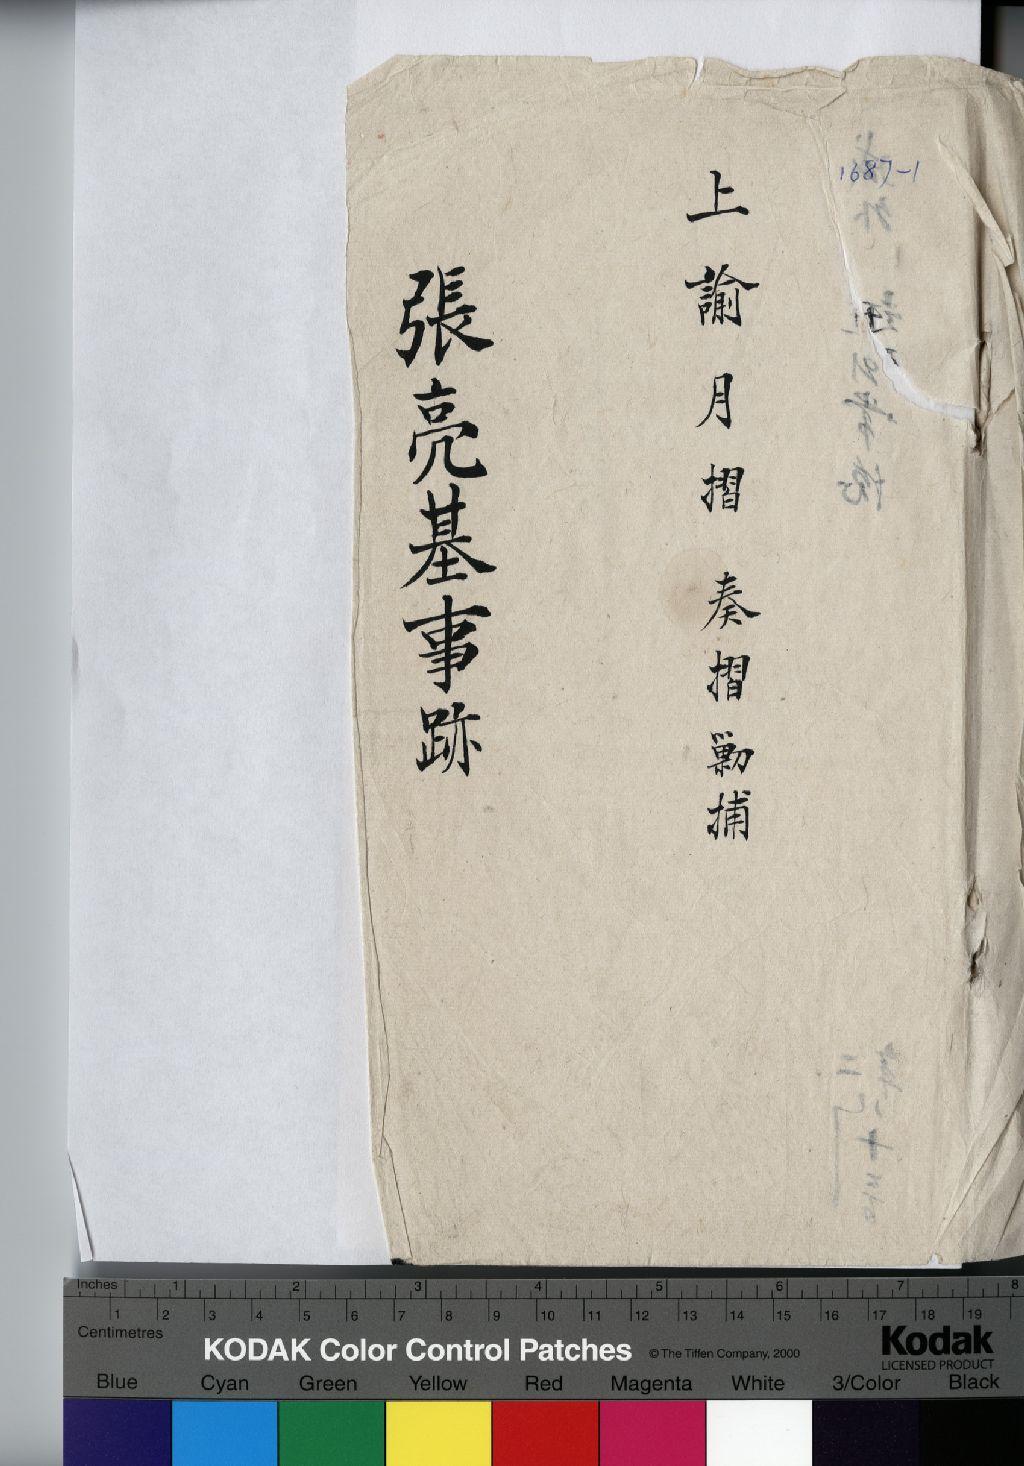 1687-1
上諭月摺奏摺剿捕
張亮基事跡
Inches 1 2 3 4 5 6 7 8
Centimetres 1 2 3 4 5 6 7 8 9 10 11 12 13 14 15 16 17 18 19
KODAK Color Control Patches © The Tiffen Company, 2000
Kodak
LICENSED PRODUCT
Blue Cyan Green Yellow Red Magenta White 3/Color Black